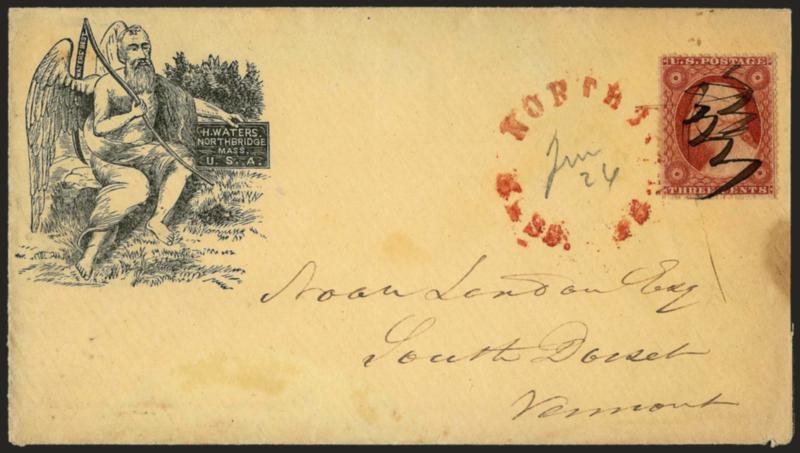 WATERS' BEST
H. WATERS,
NORTHBRIDGE
MASS.
U. S. A.
NORTHB
MASS.
Jun
24
U.S. POSTAGE
THREE CENTS
Noah Landon Esq
South Dorset
Vermont